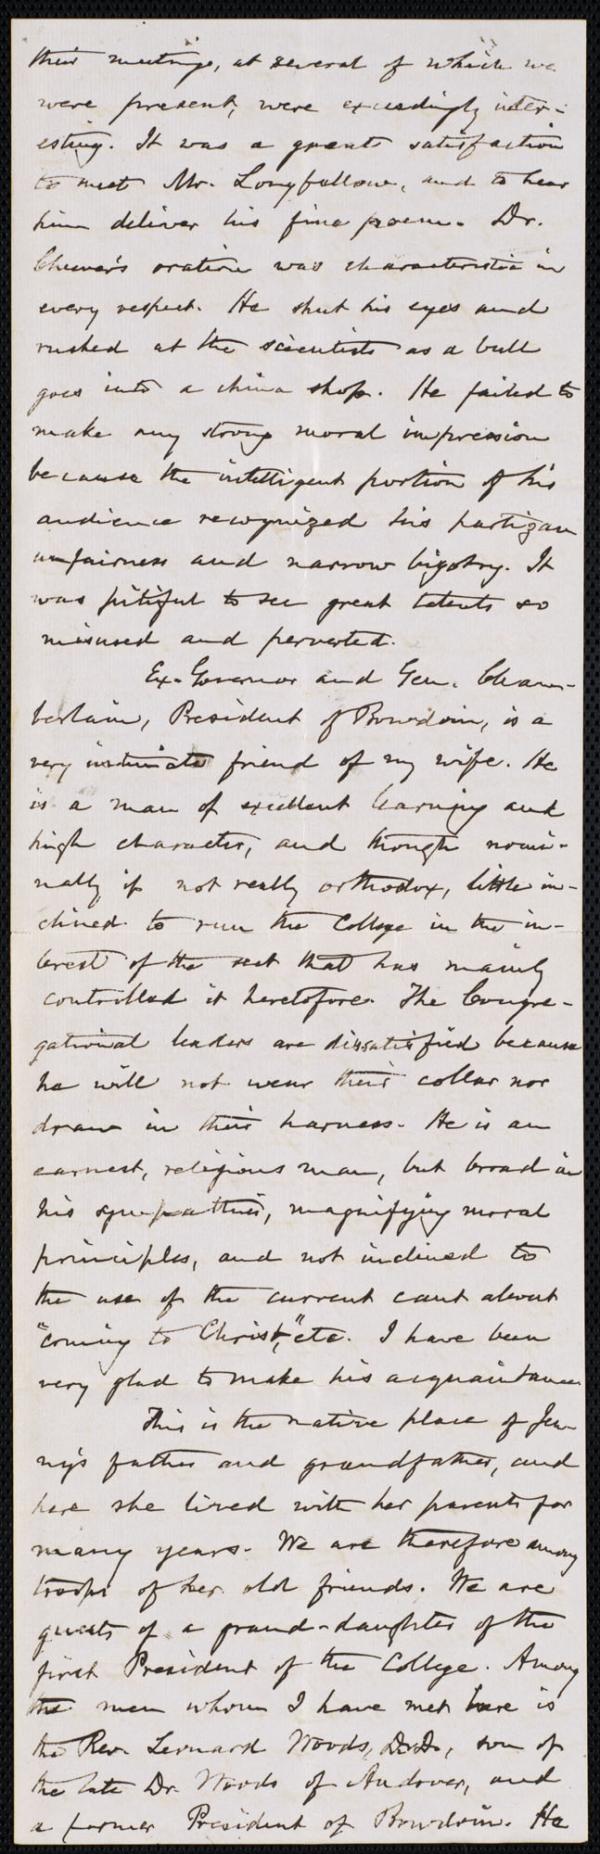 their meetings, at several of which we
were present, were exceedingly inter-
esting. It was a great satisfaction
to meet Mr. Longfellow, and to hear
him deliver his fine poem. Dr.
Cheever's oration was characteristic in
every respect. He shut his eyes and
rushed at the scientists as a bull
goes into a china shop. He failed to
make any strong moral impression
because the intelligent portion of his
audience recognized his partizan
unfairness and narrow bigotry. It
was pitiful to see great talents so
misused and perverted.
Ex-Governor and Gen. Cham-
berlain, President of Bowdoin, is a
very intimate friend of my wife. He
is a man of excellent learning and
high character, and though nomi-
nally if not really orthodox, little in-
clined to run the College in the in-
terest of the sect that has mainly
controlled it heretofore. The Congre-
gational leaders are dissatisfied because
he will not wear their collar nor
draw in their harness. He is an
earnest, religious man, but broad in
his sympathies, magnifying moral
principles, and not inclined to
the use of the current cant about
"coming to Christ," etc. I have been
very glad to make his acquaintance.
This is the native place of Jen-
ny's father and grandfather, and
here she lived with her parents for
many years. We are therefore among
troops of her old friends. We are
guests of a grand-daughter of the
first President of the College. Among
the men whom I have met here is
the Rev. Leonard Woods, D.D., son of
the late Dr. Woods of Andover, and
a former President of Bowdoin. He